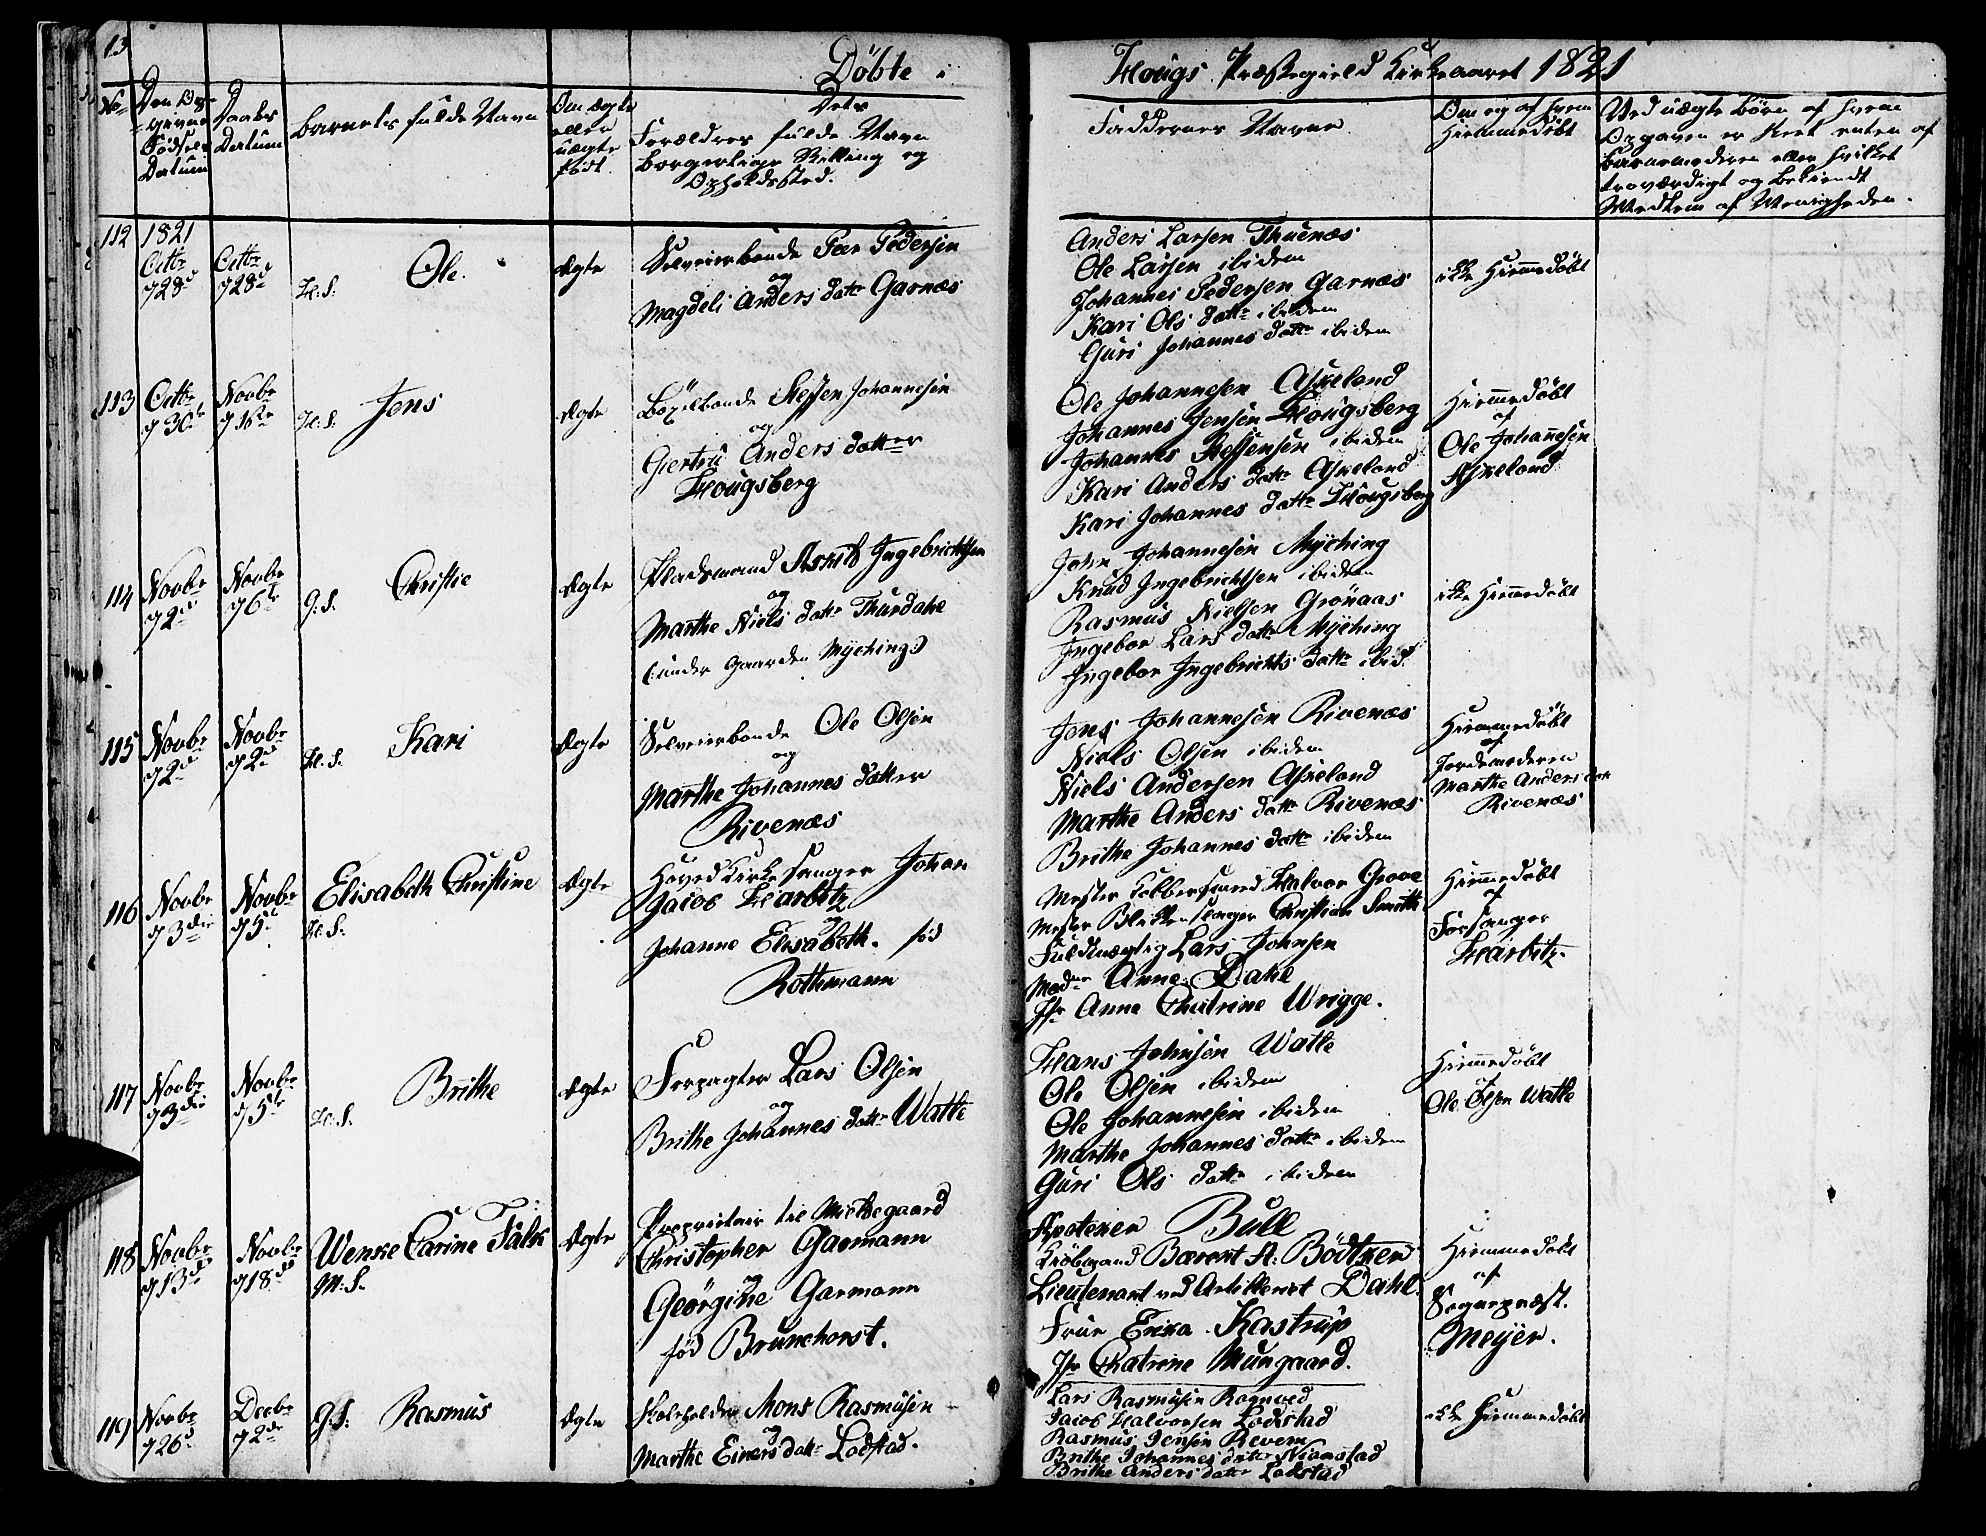 13
Döbte i
Hougs Præstegield Kirkeaaret 1821
No
Den op-
givne
Födsels
Datum
Daabs
Datum
Barnets fulde Navn
Om ægte
eller
uægte
född
Dets
Forældres fulde Navn
borgerlige Stilling og
Opholdssted.
Faddernes Navne
Om og af hvem
Hiemmedøbt
Ved uægte Börn af hvem
Opgaven er skeet enten af
Barnemoderen eller hvilket
troværdigt og bekiendt
Medlem af Menigheden.
112
1821
Octbr
d 28d
Octbr
d 28d
H. S.
Ole
Ægte
Selveierbonde Peer Pedersen
og
Magdeli Anders datr Garnæs
Anders Larsen Thuenæs
Ole Larsen ibidem
Johannes Pedersen Garnæs
Kari Ols datr ibidem
Guri Johannes datr ibidem
ikke Hiemmedøbt
113
Octbr
d 30te
Novbr
d 1ste
H. S.
Jens
Ægte
Böxelbonde Steffen Johannesen
og
Giertru Anders datter
Hougsberg
Ole Johannesen Askeland
Johannes Jensen Hougsberg
Johannes Steffensen ibidem
Kari Anders datr Askeland
Kari Johannes datr Hougsberg
Hiemmedøbt
af
Ole Johannesen
Askeland
114
Novbr
d 2d
Novbr
d 6te
G. S.
Christie
Ægte
Pladsmand Ingebrichtsen
og
Marthe Niels datr Thurdahl
(under Gaarden Myching)
John Johannesen Myching
Knud Ingebrichtsen ibidem
Rasmus Nielsen Grönaas
Ingebor Lars datr Myching
Ingebor Ingebrichts datr ibid.
ikke Hiemmedøbt
115
Novbr
d 2d
Novbr
d 2d
H. S.
Kari
Ægte
Selveierbonde Ole Olsen
og
Marthe Johannes datter
Rivenæs
Jens Johannesen Rivenæs
Niels Olsen ibidem
Niels Andersen Askeland
Marthe Anders datr Rivenæs
Brithe Johannes datr ibidem
Hiemmedøbt
af
Jordemoderen
Marthe Anders datr
Rivenæs
116
Novbr
d 3die
Novbr
d 5t
Elisabeth Christine
H. S.
Ægte
Hoved Kirkesanger Johan
Jacob Harbitz
og
Johanne Elisabeth. föd
Rothmann
Mester Kobbersmed Halvor Grove
Mester Blikkenslager Christian Smith
Fuldmægtig Lars Johnsen
Madme Anne Dahl
Jfr Anne Chatrine Wrigge.
Hiemmedøbt
af
Forsanger
Harbitz.
117
Novbr
d 3die
Novbr
d 5te
H. S.
Brithe
Ægte
Forpagter Lars Olsen
og
Brithe Johannes datr Watle
Hans Johnsen Watle
Ole Olsen ibidem
Ole Johannesen ibidem
Marthe Johannes datr ibidem
Guri Ols datr ibidem
Hiemmedøbt
af
Ole Olsen Watle
118
Novbr
d 13d
Novbr
d 18d
Wenke Carine Falk
M. S.
Ægte
Proprietair til Mieldegaard
Christopher Garmann
og
Georgine Garmann
föd Brunchorst.
Apoteker Bull
Kiöbmand Barent A. Bödtker
Lieutenant ved Artilleriet Dahl.
Frue Erica Kastrup
Jfr Chatrine Mungaard.
Hiemmedøbt
af
Sognepræst.
Meyer.
119
Novbr
d 26d
Decbr
d 2de
G. S.
Rasmus
Ægte
Skoleholder Mons Rasmusen
og
Marthe Einers datr Lodstad.
Lars Rasmusen Rognved
Jacob Halvorsen Lodstad
Rasmus Jensen Revem
Brithe Johannes datter Niaastad
Brithe Anders datr Lodstad
ikke Hiemmedøbt